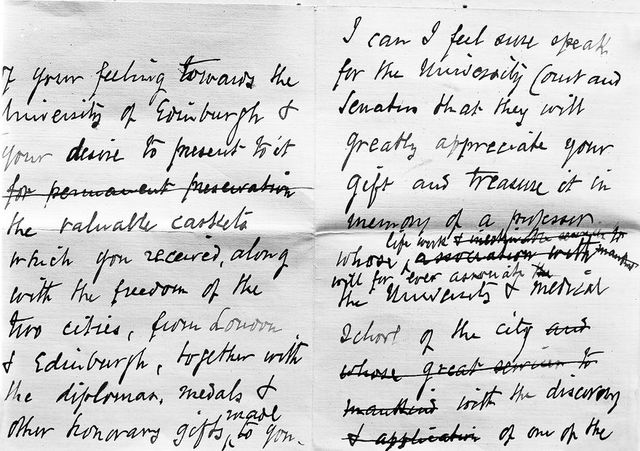 of your feeling towards the
University of Edinburgh &
your desire to present to it
for permanent preservation
the valuable caskets
which you received, along
with the freedom of the
two cities, from London
& Edinburgh, together with
the diplomas, medals &
other honorary gifts, made to you.
I can I feel sure speak
for the University Court and
Senatus that they will
greatly appreciate your
gift and treasure it in
memory of a professor
life work & to
whose association with mankind
will for ever associate the
the University & medical
School of the city and
whose great services to
mankind with the discovery
& application of one of the